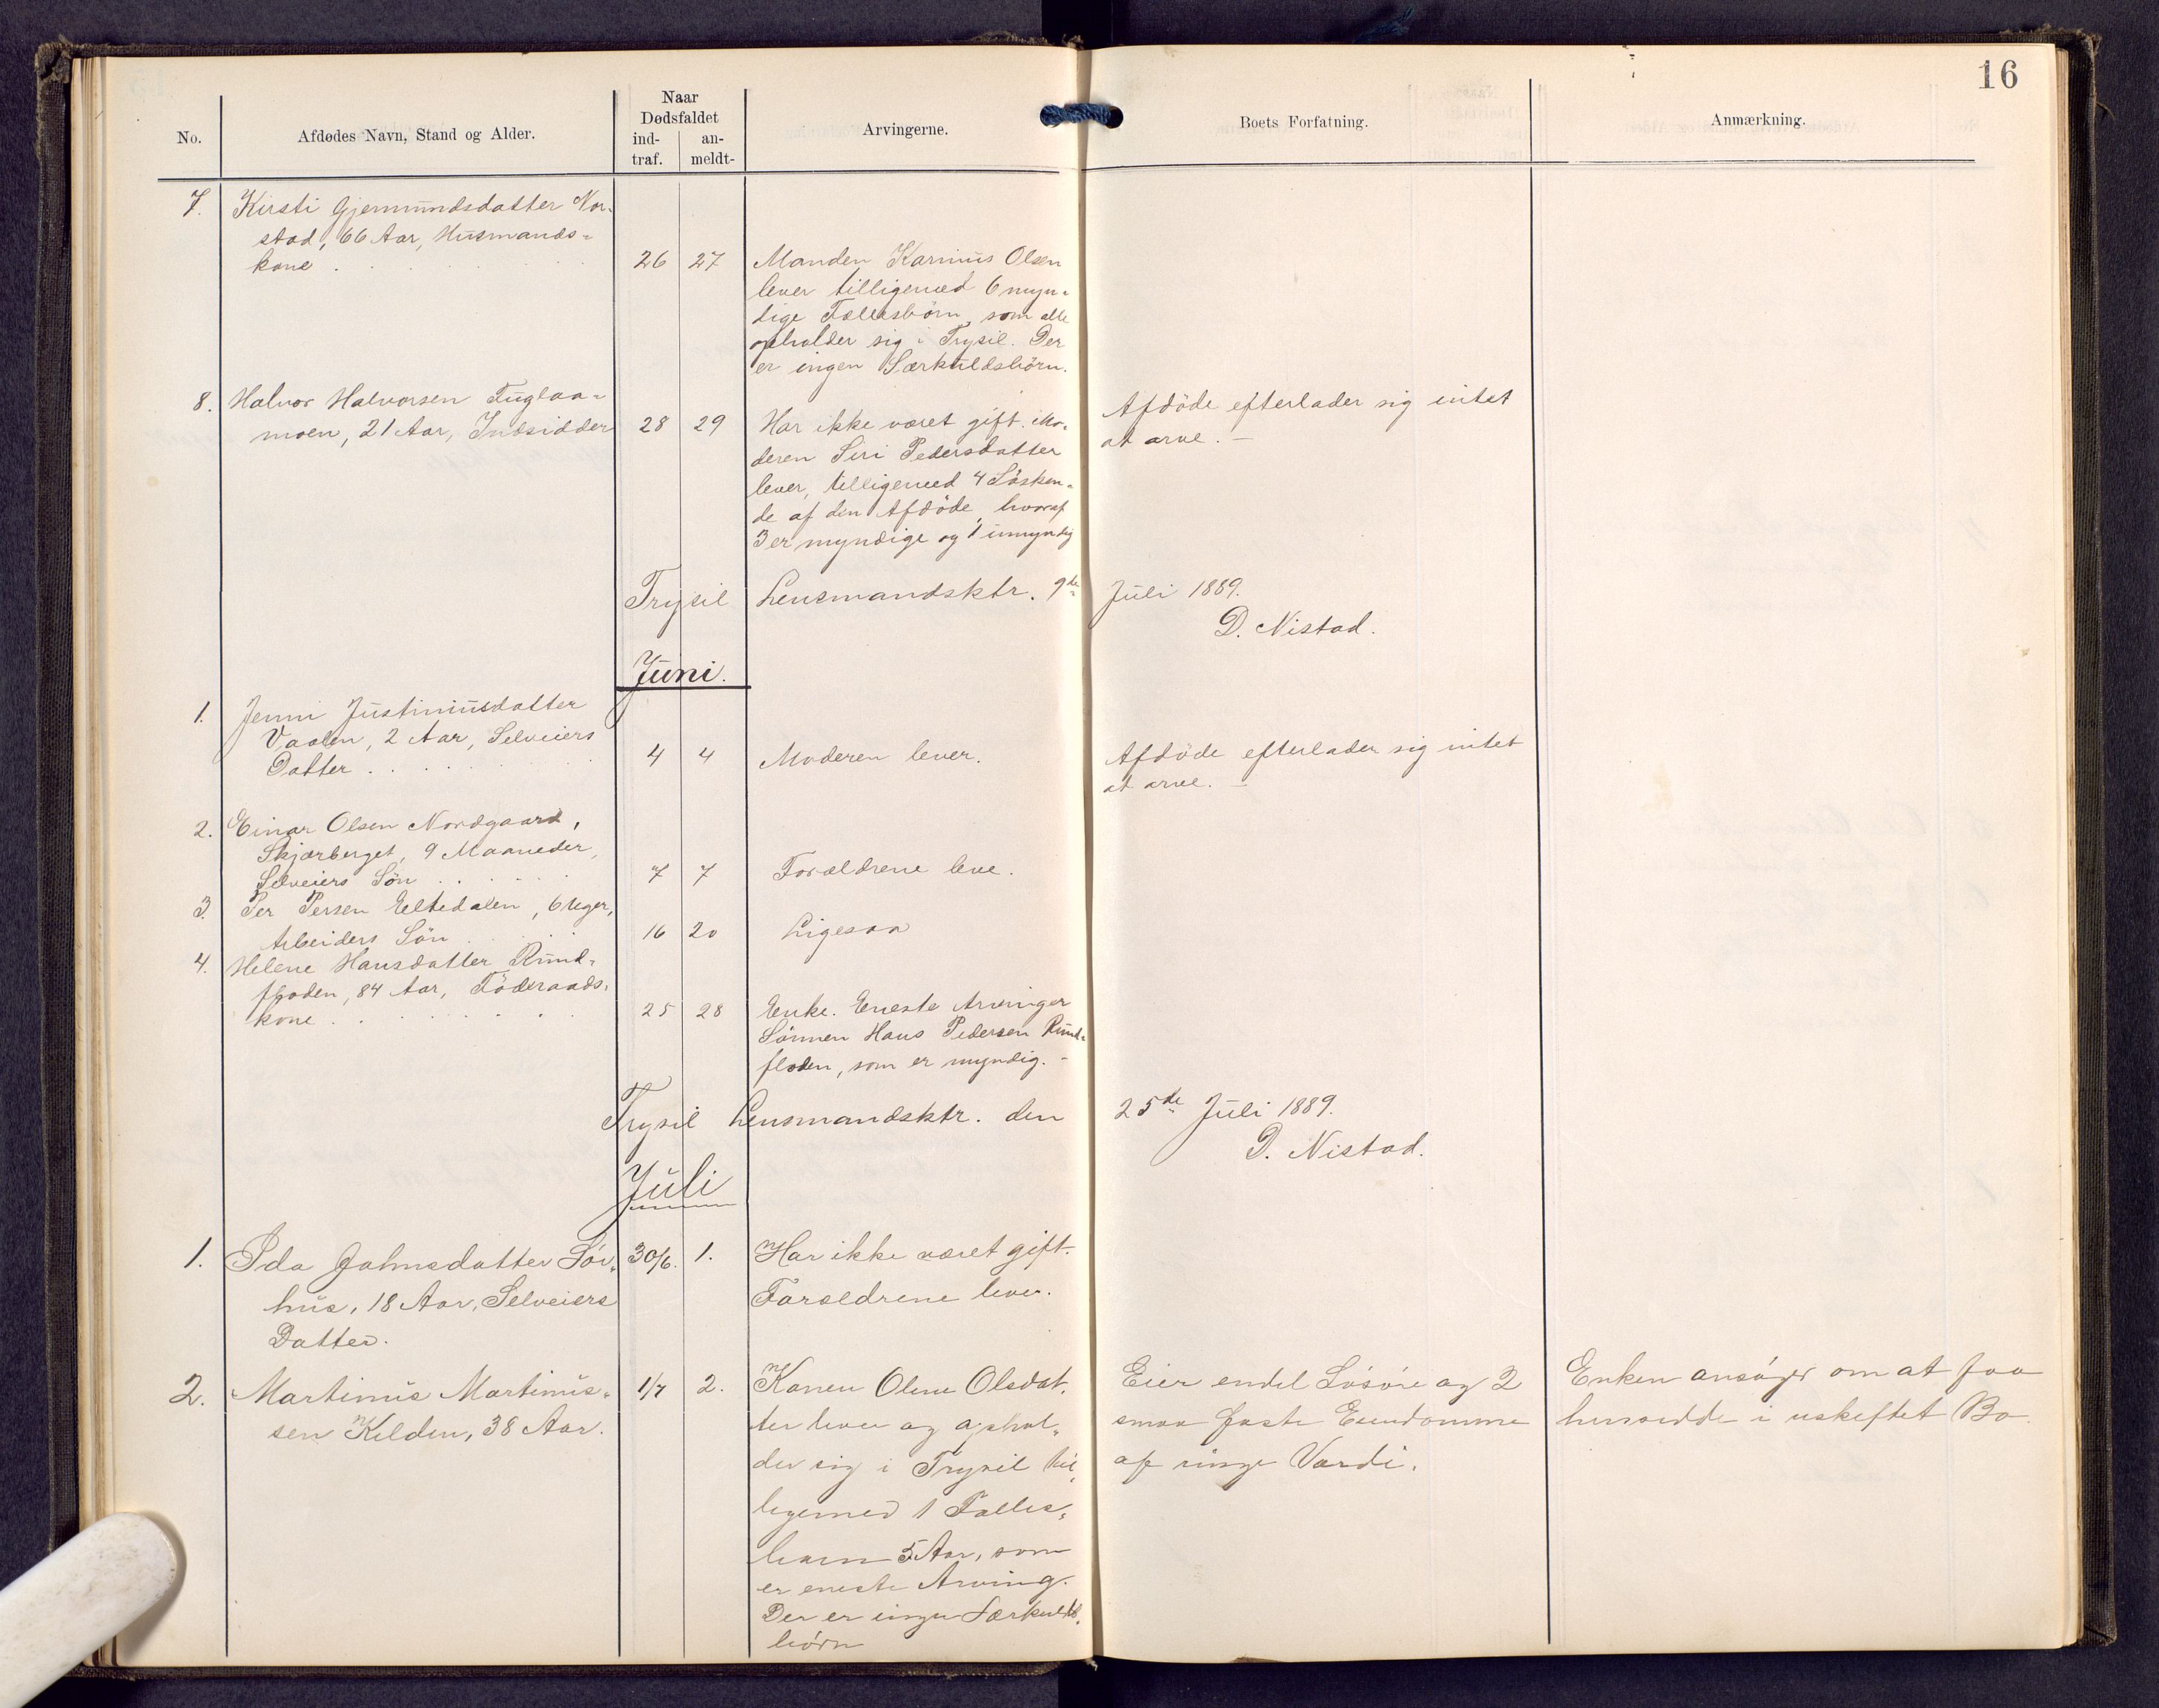 16
No.
Afdødes Navn, Stand og Alder.
Naar
Dødsfaldet
ind-
traf.
an-
meldt-
Arvingerne.
Boets Forfatning.
Anmærkning.
7. Kirsti Gjermundsdatter Nor-
stad, 66 Aar, Husmands-
kone . . . 26 27 Manden Karinus Olsen
lever tilligemed 6 myn-
dige Fællesbörn, som alle
opholder sig i Trysil. Der
er ingen Særkuldsbörn.
8. Halvor Halvorsen Fuglaa-
moen, 21 Aar, Indsidder 28 29 Har ikke været gift. Mo-
deren Siri Pedersdatter
lever, tilligemed 4 Sösken-
de af den Afdöde, hvoraf
3 er myndige og 1 umyndig
Afdöde efterlader sig intet
at arve. —
Trysil Lensmandsktr. 9de Juli 1889.
D. Nistad.
Juni.
1. Jenni Justiniusdatter
Vaalen, 2 Aar, Selveiers
Datter . . . 4 4 Moderen lever.
Afdöde efterlader sig intet
at arve. —
2. Einar Olsen Nordgaard,
Skjærberget, 9 Maaneder,
Selveiers Sön . . . 7 7 Forældrene leve.
3. Per Persen Eltedalen, 6 Uger,
Arbeiders Sön . . . 16 20 Ligesaa
4. Helene Hansdatter Rund-
floden, 84 Aar, Föderaads-
kone . . . 25 28 Enke. Eneste Arvinger
Sönnen Hans Pedersen Rund-
floden, som er myndig. -
Trysil Lensmandsktr. den 25de Juli 1889.
D. Nistad.
Juli
1. Ida Johnsdatter Sör-
hus, 18 Aar, Selveiers
Datter.
30/6. 1. Har ikke været gift.
Forældrene lever.
2. Martinus Martinus-
sen Kilden, 38 Aar.
1/7 2. Konen Oline Olsdat-
ter lever og ophol-
der sig i Trysil til-
ligemed 1 Fælles-
barn 5 Aar, som
er eneste Arving.
Der er ingen Særkulds-
börn
Eier endel Lösöre og 2
smaa faste Eiendomme
af ringe Værdi.
Enken ansöger om at faa
hensidde i uskiftet Bo